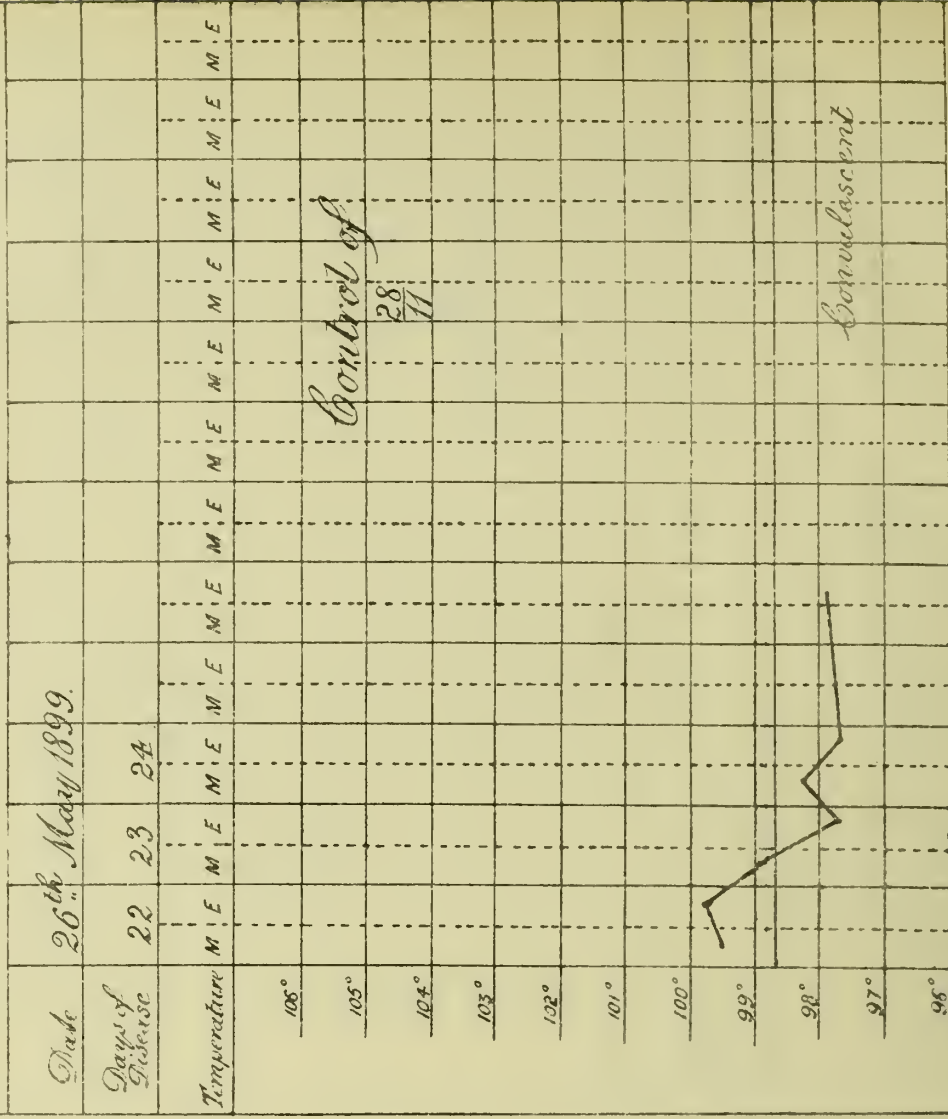 Date 26th May 1899.
Days of
Disease 22 23 24
Temperature M E M E M E M E M E M E M E M E M E M E M E M E
106°
105°
104°
103°
102°
101°
100°
99°
98°
97°
96°
Control of
28
11
Convalescent